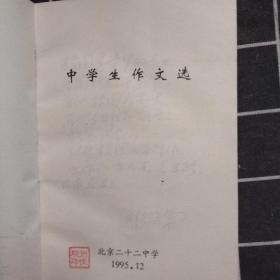 中学生作文选
北京二十二中学
1995.12